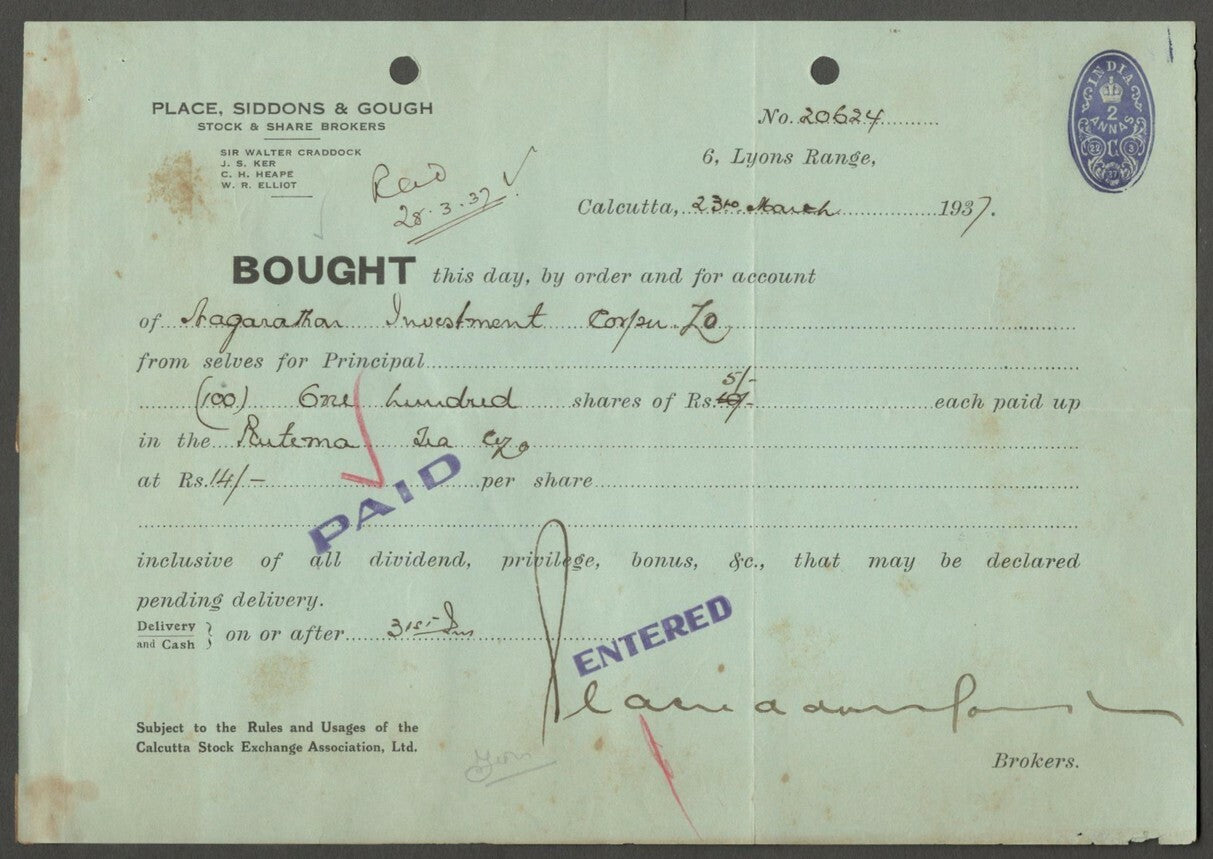 PLACE, SIDDONS & GOUGH
STOCK & SHARE BROKERS
SIR WALTER CRADDOCK
J. S. KER
C. H. HEAPE
W. R. ELLIOT
28.3.37
No. 20624
6, Lyons Range,
Calcutta, 23rd March 1937.
INDIA
2
ANNAS
BOUGHT this day, by order and for account
of Nagarathar Investment Corpn Ld
from selves for Principal
(100) One hundred shares of Rs. 5/- each paid up
in the Rutema Tea Co
at Rs. 14/- per share
PAID
inclusive of all dividend, privilege, bonus, &c., that may be declared
pending delivery.
Delivery and Cash } on or after 31st Ins
ENTERED
Subject to the Rules and Usages of the
Calcutta Stock Exchange Association, Ltd.
Brokers.